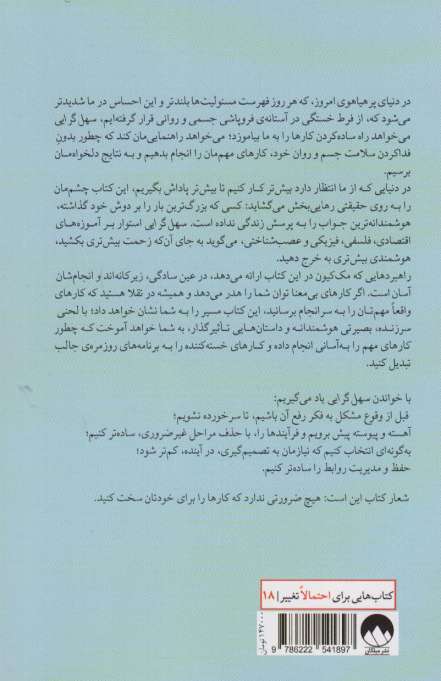 در دنیای پرهیاهوی امروز، که هر روز فهرست مسئولیت‌ها بلندتر و این احساس در ما شدیدتر
می‌شود که، از فرط خستگی در آستانه‌ی فروپاشی جسمی و روانی قرار گرفته‌ایم، سهل‌گرایی
می‌خواهد راه ساده‌کردن کارها را به ما بیاموزد؛ می‌خواهد راهنمایی‌مان کند که چطور بدونِ
فداکردن سلامت جسم و روان خود، کارهای مهم‌مان را انجام بدهیم و به نتایج دلخواه‌مان
برسیم.
در دنیایی که از ما انتظار دارد بیش‌تر کار کنیم تا بیش‌تر پاداش بگیریم، این کتاب چشم‌مان
را به روی حقیقتی رهایی‌بخش می‌گشاید: کسی که بزرگ‌ترین بار را بر دوش خود گذاشته،
هوشمندانه‌ترین جواب را به پرسش زندگی نداده است. سهل‌گرایی استوار بر آموزه‌های
اقتصادی، فلسفی، فیزیکی و عصب‌شناختی، می‌گوید به جای آن‌که زحمت بیش‌تری بکشید،
هوشمندی بیش‌تری به خرج دهید.
راهبردهایی که مک‌کیون در این کتاب ارائه می‌دهد، در عین سادگی، زیرکانه‌اند و انجام‌شان
آسان است. اگر کارهای بی‌معنا توان شما را هدر می‌دهد و همیشه در تقلا هستید که کارهای
واقعاً مهم‌تان را به سرانجام برسانید، این کتاب مسیر را به شما نشان خواهد داد؛ با لحنی
سرزنده، بصیرتی هوشمندانه و داستان‌هایی تأثیرگذار، به شما خواهد آموخت که چطور
کارهای مهم را به‌آسانی انجام داده و کارهای خسته‌کننده را به برنامه‌های روزمره‌ی جالب
تبدیل کنید.
با خواندن سهل‌گرایی یاد می‌گیریم:
قبل از وقوع مشکل به فکر رفع آن باشیم، تا سرخورده نشویم؛
آهسته و پیوسته پیش برویم و فرآیندها را، با حذف مراحل غیرضروری، ساده‌تر کنیم؛
به‌گونه‌ای انتخاب کنیم که نیازمان به تصمیم‌گیری، در آینده، کم‌تر شود؛
حفظ و مدیریت روابط را ساده‌تر کنیم.
شعار کتاب این است: هیچ ضرورتی ندارد که کارها را برای خودتان سخت کنید.
کتاب‌هایی برای احتمالاً تغییر | ۱۸
۱۴۷۰۰۰ تومان
9 786222 541897
نشر میلکان